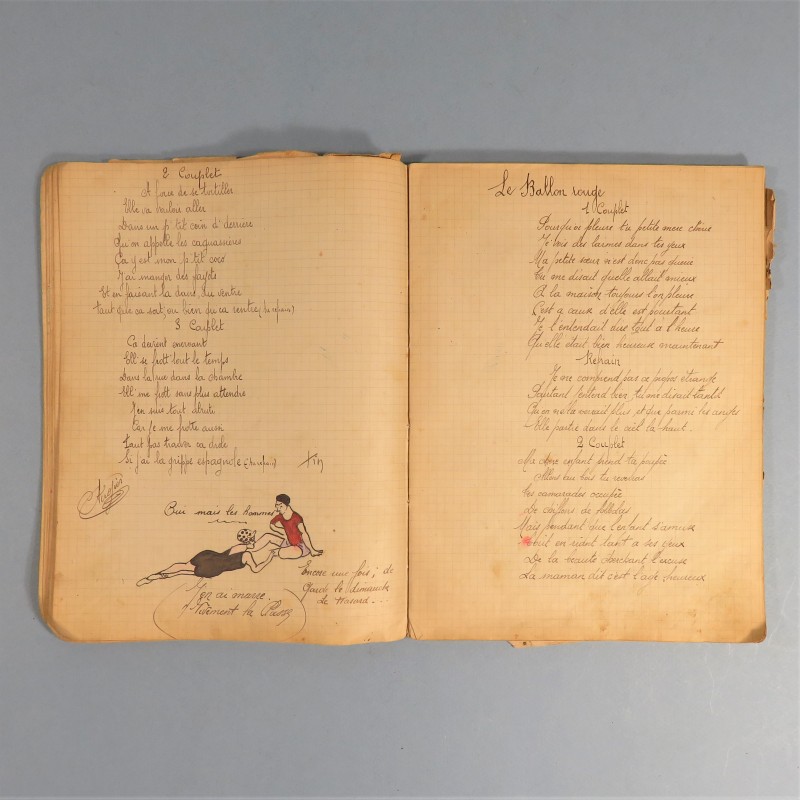 2 Couplet
A force de se tortiller
Elle va vouloir aller
Dans un p'tit coin d'derrière
Qu'on appelle les
Ça y est mon p'tit coco
J'ai manger des fayots
Et en faisant la danse du ventre
Faut que ça sort, ou bien qu'ça rentre, (au refrain)
3 Couplet
Ca devient enervant
Ell' se frott' tout le temps
Dans la rue dans la chambre
Ell' me frott sans plus attendre
J'en suis tout abruti
Car je me frotte aussi
Faut pas trouver ça drole
Si j'ai la grippe espagnole (au refrain) Fin
Oui mais les hommes
Encore une fois, de
garde le dimanche
le Hasard...
J'en ai marre.
Vivement la
Le Ballon rouge
1 Couplet
Pourquoi pleure tu petite mere chérie
Je vois des larmes dans tes yeux
Ma petite sœur n'est donc pas guerie
Tu me disait quelle allait mieux
A la maison toujours l'on pleure
C'est a cause d'elle est pourtant
Je l'entendait dire tout a l'heure
Qu'elle était bien heureuse maintenant
Refrain
Je ne comprend pas ce propos étrange
Pourtant j'entend bien, tu me disait tantôt
Qu'on ne la verrait plus et que parmi les anges
Elle partie dans le ciel la haut.
2 Couplet
Ma chere enfant prend ta poupée
Allons au bois tu reverras
Les camarades occupée
De
Mais pendant que l'enfant s'amuse
en rident tant a ses yeux
De la beaute cherchant l'excuse
La maman dit c'est l'age heureux